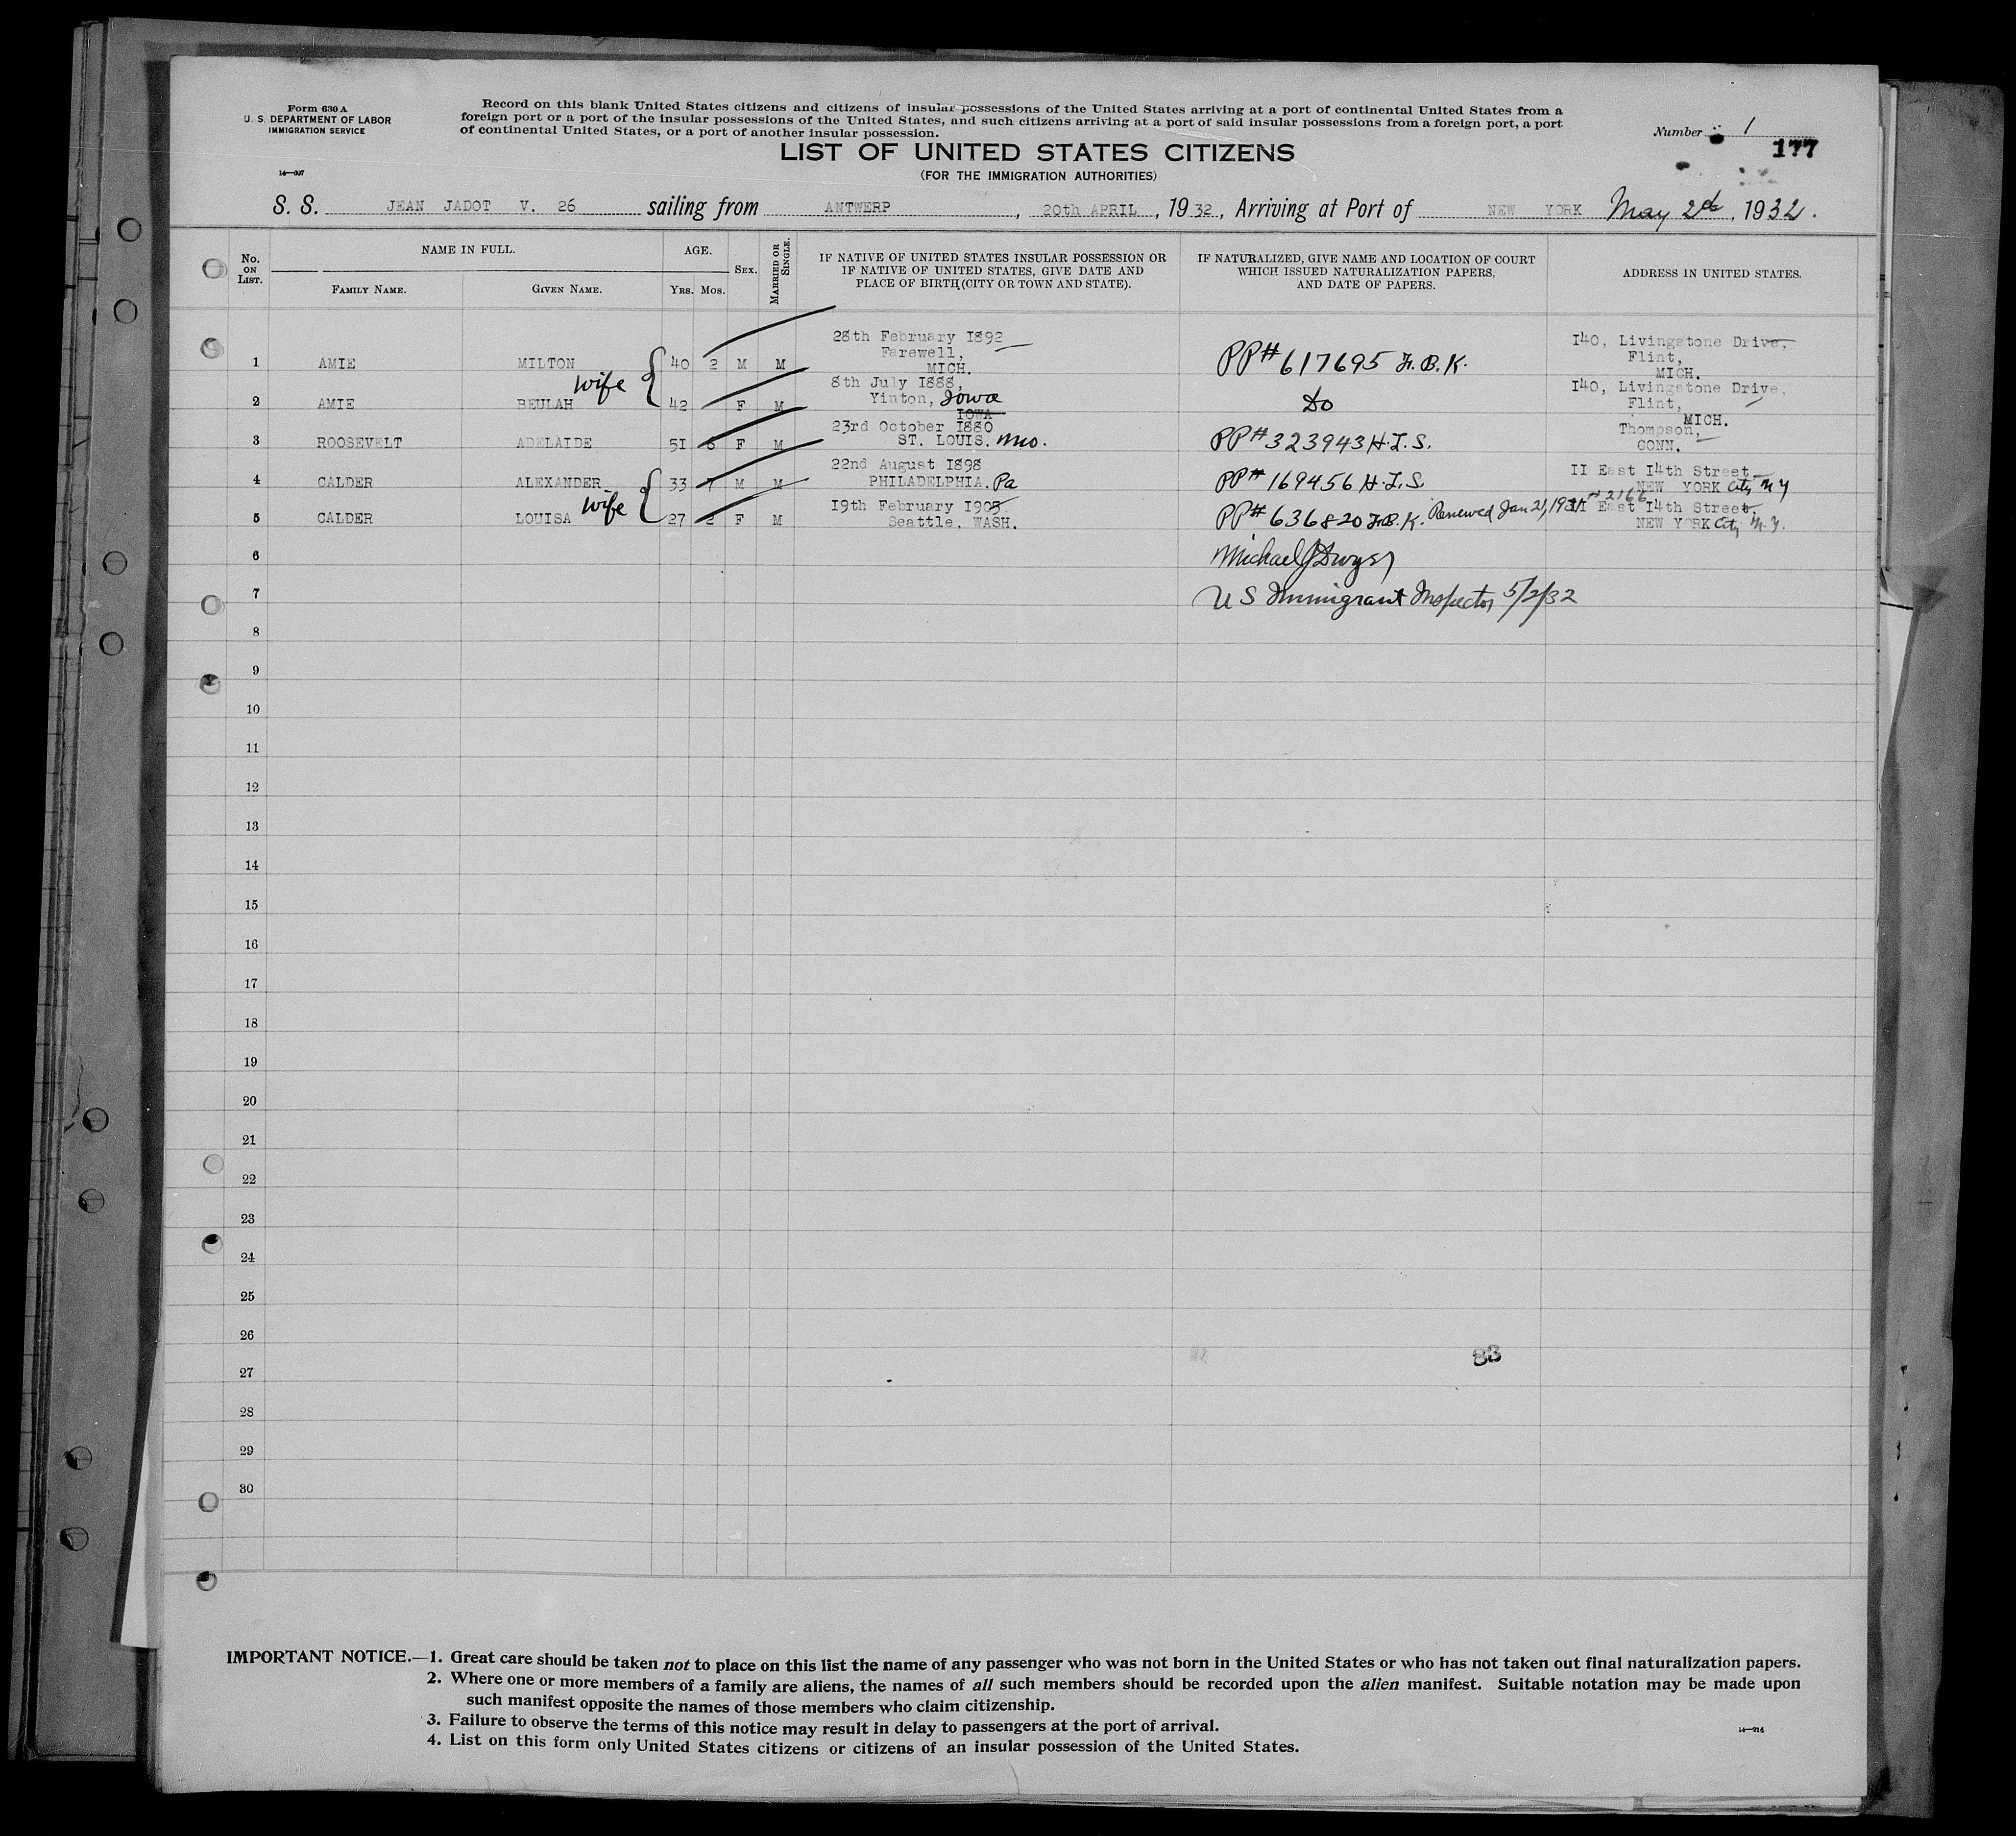 Form 630 A
U. S. DEPARTMENT OF LABOR
IMMIGRATION SERVICE
14—397
Record on this blank United States citizens and citizens of insular possessions of the United States arriving at a port of continental United States from a
foreign port or a port of the insular possessions of the United States, and such citizens arriving at a port of said insular possessions from a foreign port, a port
of continental United States, or a port of another insular possession.
Number 1
177
LIST OF UNITED STATES CITIZENS
(FOR THE IMMIGRATION AUTHORITIES)
S. S. JEAN JADOT V. 26 sailing from ANTWERP, 20th APRIL, 1932, Arriving at Port of NEW YORK May 2d, 1932.
No. ON LIST. NAME IN FULL. FAMILY NAME. GIVEN NAME. AGE. YRS. MOS. SEX. MARRIED OR SINGLE. IF NATIVE OF UNITED STATES INSULAR POSSESSION OR IF NATIVE OF UNITED STATES, GIVE DATE AND PLACE OF BIRTH (CITY OR TOWN AND STATE). IF NATURALIZED, GIVE NAME AND LOCATION OF COURT WHICH ISSUED NATURALIZATION PAPERS, AND DATE OF PAPERS. ADDRESS IN UNITED STATES.
1 AMIE MILTON 40 2 M M 28th February I892 Farewell, MICH. PP# 617695 F.B.K. I40, Livingstone Drive, Flint, MICH.
2 AMIE BEULAH wife 42 F M 8th July I888, Yinton, Iowa IOWA Do I40, Livingstone Drive, Flint, MICH.
3 ROOSEVELT ADELAIDE 5I 6 F M 23rd October I880 ST. LOUIS. Mo. PP# 323943 H.I.S. Thompson, CONN.
4 CALDER ALEXANDER 33 7 M M 22nd August I898 PHILADELPHIA. Pa PP# 169456 H.I.S. II East I4th Street NEW YORK City NY
5 CALDER LOUISA wife 27 2 F M I9th February I905 Seattle, WASH. PP# 636820 F.B.K. Renewed Jan 21, 1931 # 2166 II East I4th Street, NEW YORK City N.Y.
6 Michael J Dwyer
7 US Immigrant Inspector 5/2/32
8
9
10
11
12
13
14
15
16
17
18
19
20
21
22
23
24
25
26
83
27
28
29
30
IMPORTANT NOTICE.—1. Great care should be taken not to place on this list the name of any passenger who was not born in the United States or who has not taken out final naturalization papers.
2. Where one or more members of a family are aliens, the names of all such members should be recorded upon the alien manifest. Suitable notation may be made upon
such manifest opposite the names of those members who claim citizenship.
3. Failure to observe the terms of this notice may result in delay to passengers at the port of arrival.
4. List on this form only United States citizens or citizens of an insular possession of the United States.
14—214